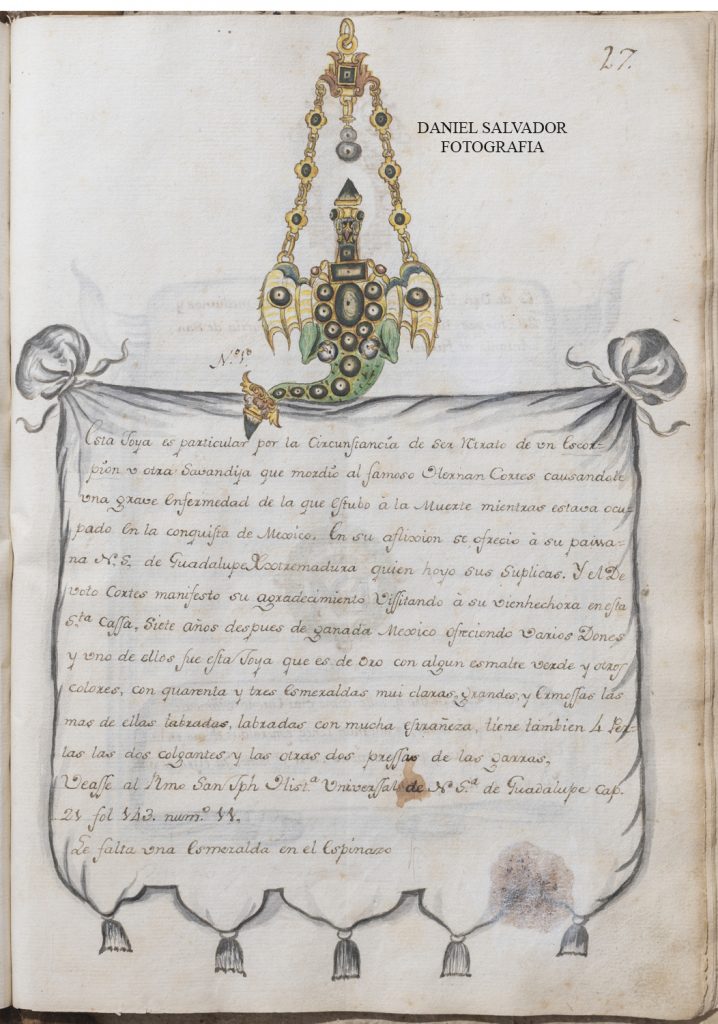 27.
DANIEL SALVADOR
FOTOGRAFIA
N.º 1º
Esta Joya es particular por la Circunstancia de Ser Rtrato de vn Escor-
pion v otra Savandija que mordio al famoso Hernan Cortes causandole
vna grave Enfermedad de la que Estubo à la Muerte mientras estava ocu-
pado En la conquista de Mexico. En su aflixion se ofrecio à su paissa-
na N. S. de Guadalupe Extremadura quien hoyo sus Suplicas. Y el De
voto Cortes manifesto su agradecimiento Vissitando à su vienhechora en esta
S.ta Cassa, Siete años despues de ganada Mexico ofreciendo Varios Dones
y vno de ellos fue esta Joya que es de Oro con algun esmalte verde y otros
colores, con quarenta y tres Esmeraldas mui claras, grandes, y Ermossas las
mas de ellas labradas, labradas con mucha estrañeza, tiene tambien 4 Per-
las las dos colgantes y las otras dos pressas de las garras,
Veasse al Rmo San Jph Hist.a Universsal de N S.a de Guadalupe Cap.
21 fol 143. num.º 11.
Le falta vna Esmeralda en el Espinazo